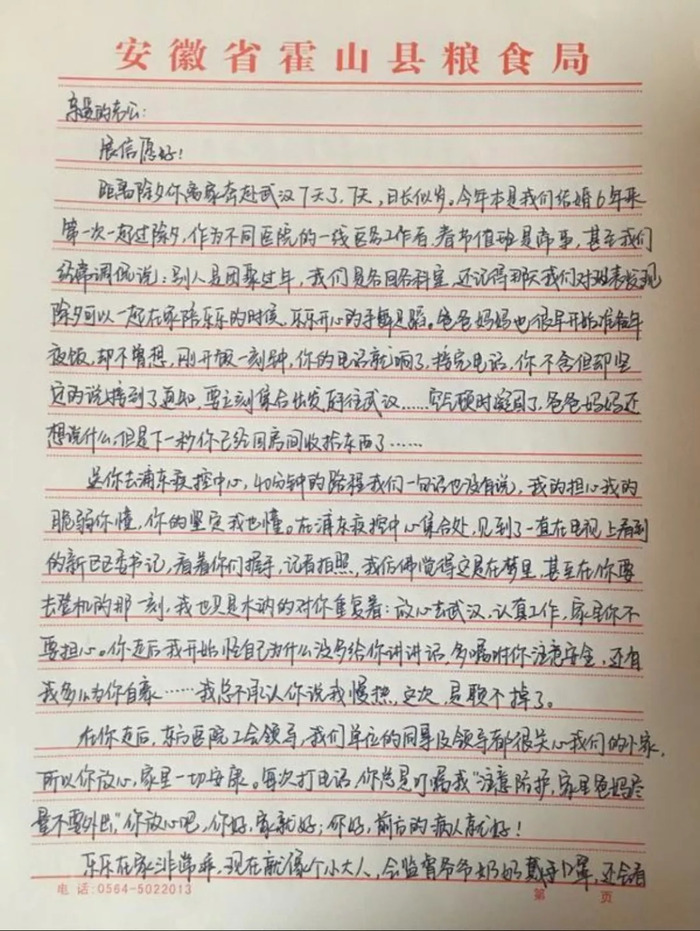 安徽省霍山县粮食局
亲爱的老公:
展信愿好!
距离除夕你离家奔赴武汉7天了,7天,日长似岁。今年本是我们结婚6年来
第一次一起过除夕,作为不同医院的一线医务工作者,春节值班是常事,甚至我们
经常调侃说:别人是团聚过年,我们是各回各科室,还记得那天我们对班表发现
除夕可以一起在家陪乐乐的时候,乐乐开心的手舞足蹈。爸爸妈妈也很早开始准备年
夜饭,却不曾想,刚开饭一刻钟,你的电话就响了,接完电话,你不舍但却坚
定的说接到了通知,要立刻集合出发前往武汉……空气顿时凝固了,爸爸妈妈还
想说什么,但是下一秒你已经回房间收拾东西了……
送你去浦东疾控中心,40分钟的路程我们一句话也没有说,我的担心我的
脆弱你懂,你的坚定我也懂。在浦东疾控中心集合处,见到了一直在电视上看到
的新区区委书记,看着你们握手,记者拍照,我仿佛觉得这是在梦里,甚至在你要
去登机的那一刻,我也只是木讷的对你重复着:放心去武汉,认真工作,家里你不
要担心。你走后我开始怪自己为什么没多给你讲讲话,多嘱咐你注意安全,还有
我多么为你自豪……我总不承认你说我慢热,这次,是赖不掉了。
在你走后,东方医院工会领导,我们单位的同事及领导都很关心我们的小家,
所以你放心,家里一切安康。每次打电话,你总是叮嘱我"注意防护,家里爸妈尽
量不要外出,"你放心吧,你好,家就好;你好,前方的病人就好!
乐乐在家非常乖,现在就像个小大人,会监督爷爷奶奶戴手口罩,还会看
电话:0564-5022013
第 页